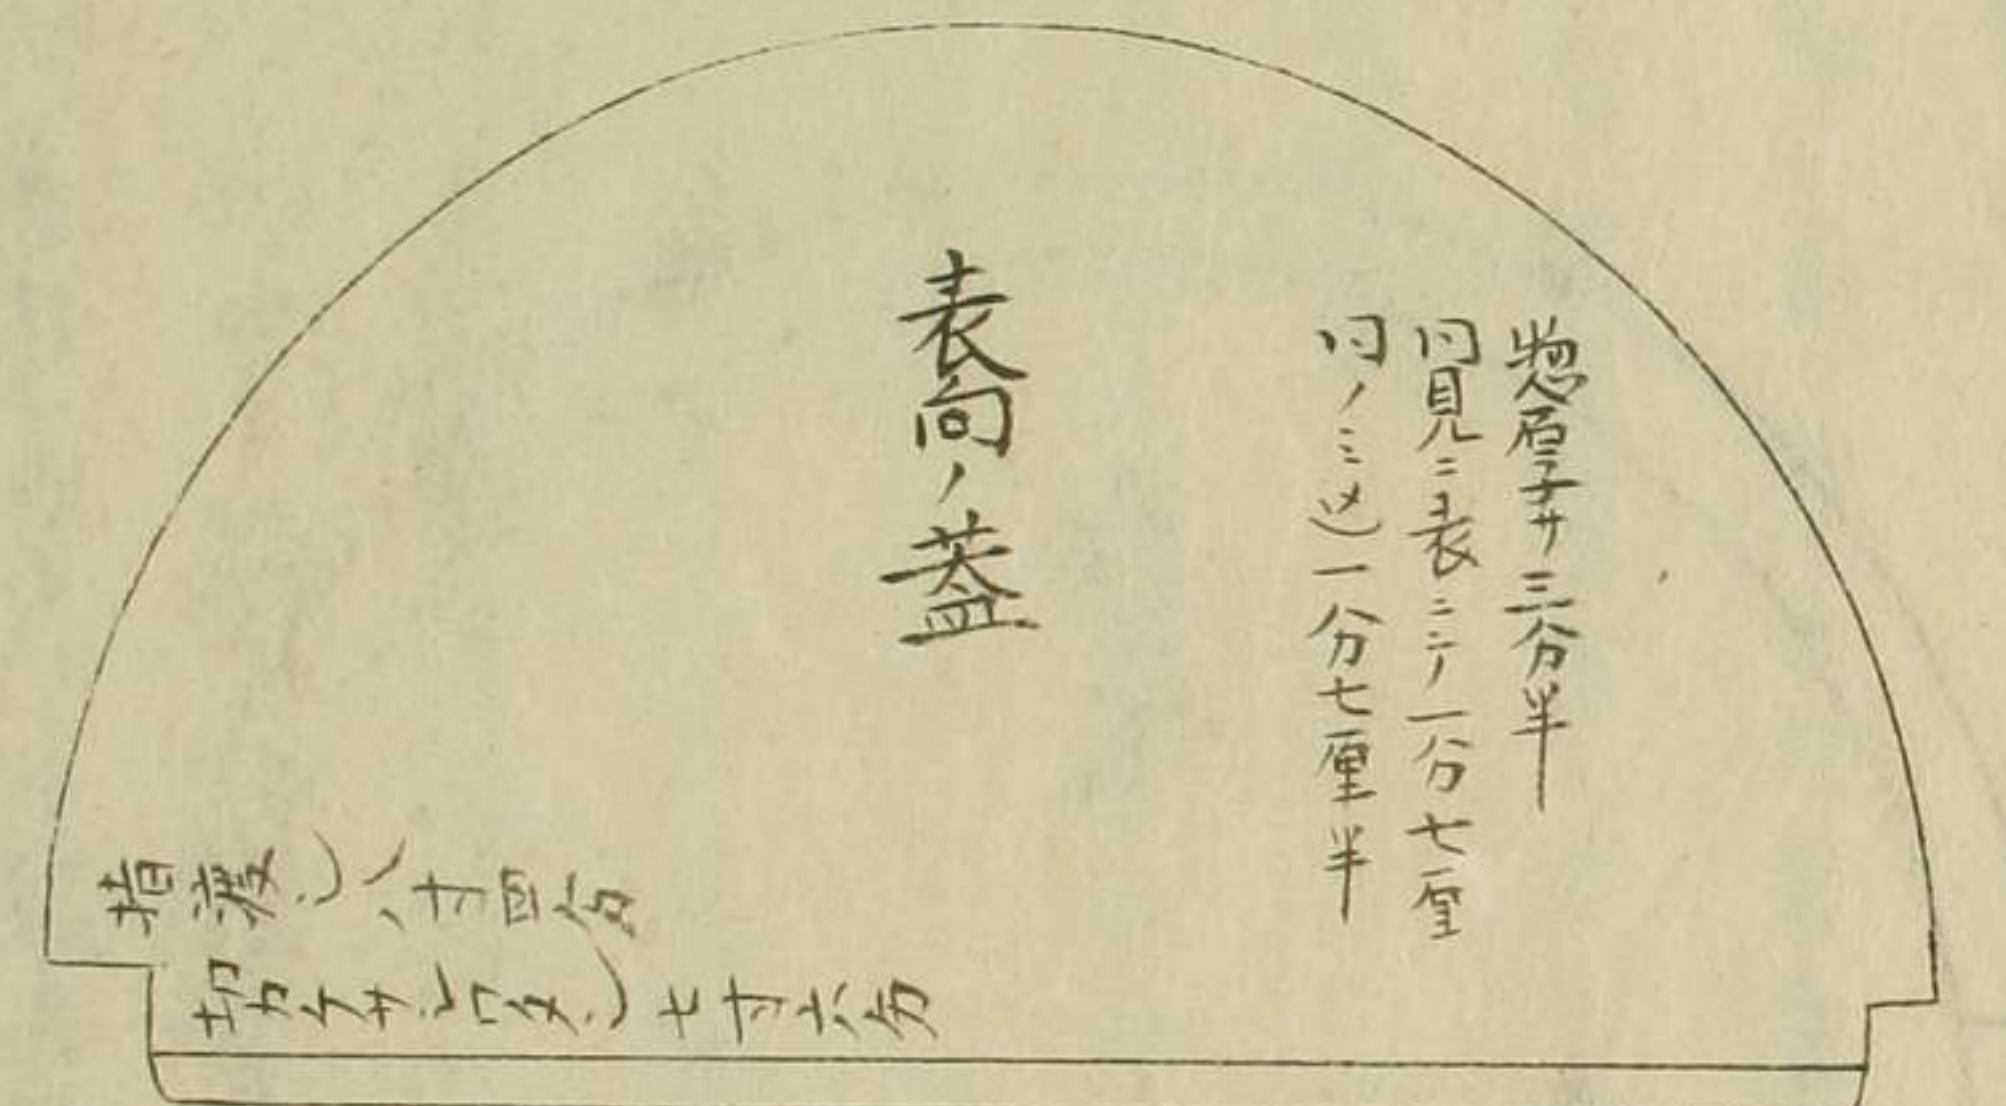 惣厚サ三分半
同見ニ表ニテ一分七厘
同ノミ込一分七厘半
表向ノ蓋
指渡し八寸四分
切カケサシワタシ七寸六分